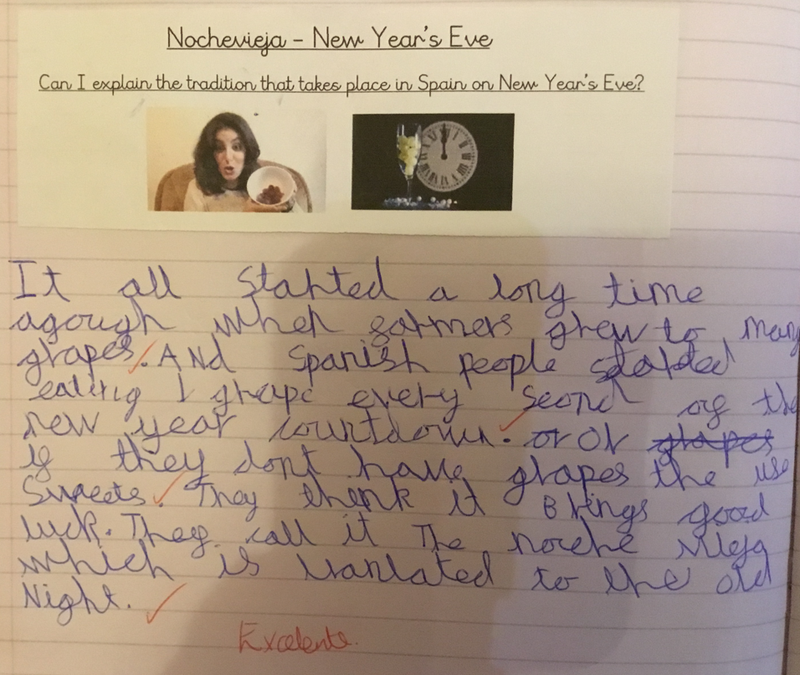 Nochevieja - New Year's Eve
Can I explain the tradition that takes place in Spain on New Year's Eve?
It all started a long time
agough when farmers grew to many
grapes. And Spanish people started
eating 1 grape every second of the
new year countdown. or Or grapes
if they dont have grapes the use
Sweets. They think it Brings good
luck. They call it The noche vieja
which is tranlated to the old
Night.
Excelente.